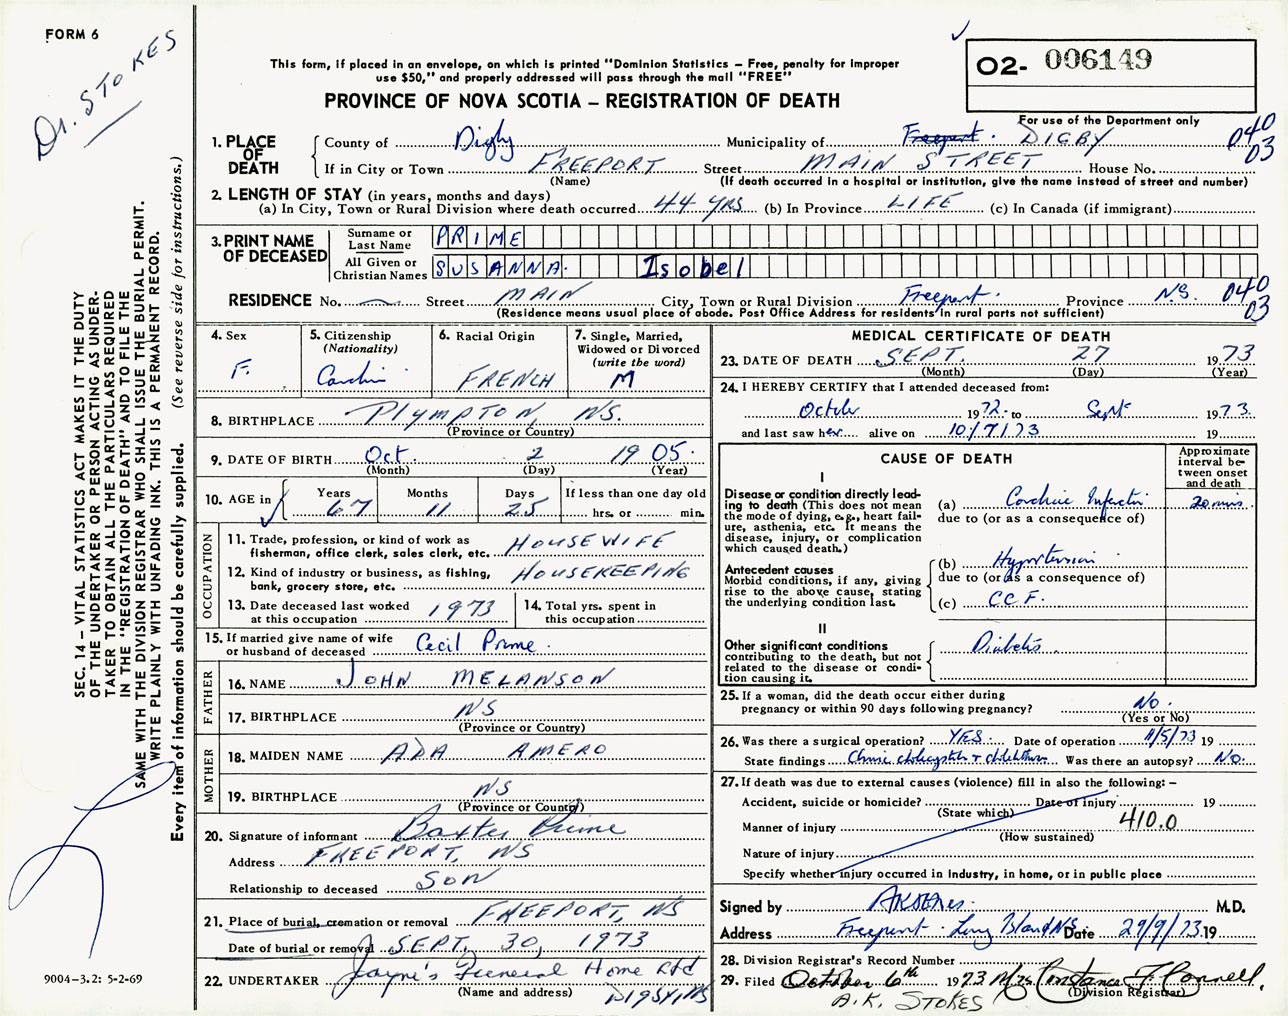 FORM 6
Dr. STOKES
This form, if placed in an envelope, on which is printed "Dominion Statistics – Free, penalty for improper
use $50," and properly addressed will pass through the mail "FREE"
PROVINCE OF NOVA SCOTIA – REGISTRATION OF DEATH
O2- 006149
For use of the Department only
040
03
1. PLACE OF DEATH
County of Digby Municipality of Freeport. DIGBY
If in City or Town FREEPORT Street MAIN STREET House No.
(Name) (If death occurred in a hospital or institution, give the name instead of street and number)
2. LENGTH OF STAY (in years, months and days)
(a) In City, Town or Rural Division where death occurred 44 YRS (b) In Province LIFE (c) In Canada (if immigrant)
3. PRINT NAME OF DECEASED
Surname or Last Name PRIME
All Given or Christian Names SUSANNA. Isobel
RESIDENCE No. Street MAIN City, Town or Rural Division Freeport. Province N.S. 040
03
(Residence means usual place of abode. Post Office Address for residents in rural parts not sufficient)
4. Sex
F.
5. Citizenship
(Nationality)
6. Racial Origin
FRENCH
7. Single, Married,
Widowed or Divorced
(write the word)
M
8. BIRTHPLACE PLYMPTON, NS.
(Province or Country)
9. DATE OF BIRTH Oct. 2 1905.
(Month) (Day) (Year)
10. AGE in Years Months Days If less than one day old
67 11 25 hrs. or min.
OCCUPATION
11. Trade, profession, or kind of work as
fisherman, office clerk, sales clerk, etc. HOUSEWIFE
12. Kind of industry or business, as fishing,
bank, grocery store, etc. HOUSEKEEPING
13. Date deceased last worked
at this occupation 1973
14. Total yrs. spent in
this occupation
15. If married give name of wife
or husband of deceased Cecil Prime.
FATHER
16. NAME JOHN MELANSON
17. BIRTHPLACE NS
(Province or Country)
MOTHER
18. MAIDEN NAME ADA AMERO
19. BIRTHPLACE NS
(Province or Country)
20. Signature of informant Baxter Prime
Address FREEPORT, NS
Relationship to deceased SON
21. Place of burial, cremation or removal FREEPORT, NS
Date of burial or removal SEPT. 30, 1973
22. UNDERTAKER Jayne's Funeral Home Ltd
(Name and address) DIGBY, NS
MEDICAL CERTIFICATE OF DEATH
23. DATE OF DEATH SEPT. 27 1973
(Month) (Day) (Year)
24. I HEREBY CERTIFY that I attended deceased from:
October 1972 to Sept 1973.
and last saw her alive on 10/7/73 19
CAUSE OF DEATH
Approximate
interval be-
tween onset
and death
I
Disease or condition directly lead-
ing to death (This does not mean
the mode of dying, e.g., heart fail-
ure, asthenia, etc. It means the
disease, injury, or complication
which caused death.)
(a) Cardiac Infarction 20 mins
due to (or as a consequence of)
Antecedent causes
Morbid conditions, if any, giving
rise to the above cause, stating
the underlying condition last.
(b) Hypertension
due to (or as a consequence of)
(c) CCF.
II
Other significant conditions
contributing to the death, but not
related to the disease or condi-
tion causing it.
Diabetes
25. If a woman, did the death occur either during
pregnancy or within 90 days following pregnancy? No.
(Yes or No)
26. Was there a surgical operation? YES Date of operation 11/5/73 19
State findings Was there an autopsy? No.
27. If death was due to external causes (violence) fill in also the following: –
Accident, suicide or homicide? Date of injury 19
(State which)
Manner of injury 410.0
(How sustained)
Nature of injury
Specify whether injury occurred in industry, in home, or in public place
Signed by AKStokes. M.D.
Address Freeport. Long Island NS Date 29/9/73. 19
28. Division Registrar's Record Number
29. Filed October 6th 1973 Constance F. Connell.
(Division Registrar)
A.K. STOKES
SEC. 14 – VITAL STATISTICS ACT MAKES IT THE DUTY
OF THE UNDERTAKER OR PERSON ACTING AS UNDER-
TAKER TO OBTAIN ALL THE PARTICULARS REQUIRED
IN THE "REGISTRATION OF DEATH" AND TO FILE THE
SAME WITH THE DIVISION REGISTRAR WHO SHALL ISSUE THE BURIAL PERMIT.
WRITE PLAINLY WITH UNFADING INK. THIS IS A PERMANENT RECORD.
Every item of information should be carefully supplied. (See reverse side for instructions.)
9004–3.2: 5-2-69